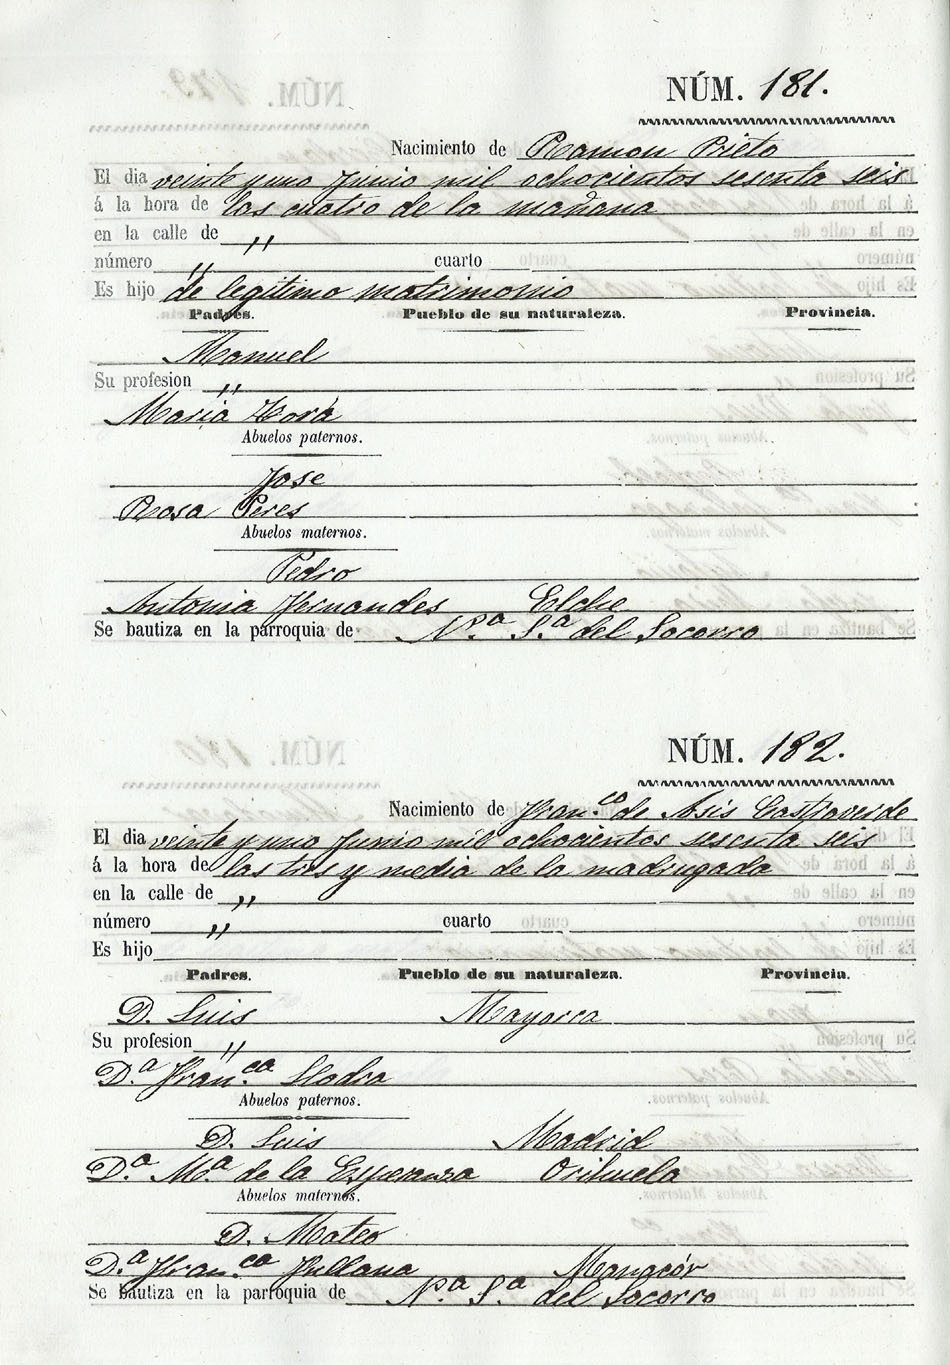 NÚM. 181.
Nacimiento de Ramon Prieto
El dia veinte y uno Junio mil ochocientos sesenta seis
á la hora de las cuatro de la mañana
en la calle de "
número " cuarto
Es hijo de legitimo matrimonio
Padres. Pueblo de su naturaleza. Provincia.
Manuel
Su profesion "
Maria Zora
Abuelos paternos.
Jose
Rosa Peres
Abuelos maternos.
Pedro
Antonia Hernandes Elche
Se bautiza en la parroquia de N.ª S.ª del Socorro
NÚM. 182.
Nacimiento de Fran.co de Asis Castroverde
El dia veinte y uno Junio mil ochocientos sesenta seis
á la hora de las tres y media de la madrugada
en la calle de "
número " cuarto
Es hijo
Padres. Pueblo de su naturaleza. Provincia.
D. Luis Mayorca
Su profesion "
D.ª Fran.ca Llodra
Abuelos paternos.
D. Luis Madrid
D.ª M.ª de la Esperanza Orihuela
Abuelos maternos.
D. Mateo
D.ª Fran.ca Fullana Manacór
Se bautiza en la parroquia de N.ª S.ª del Socorro